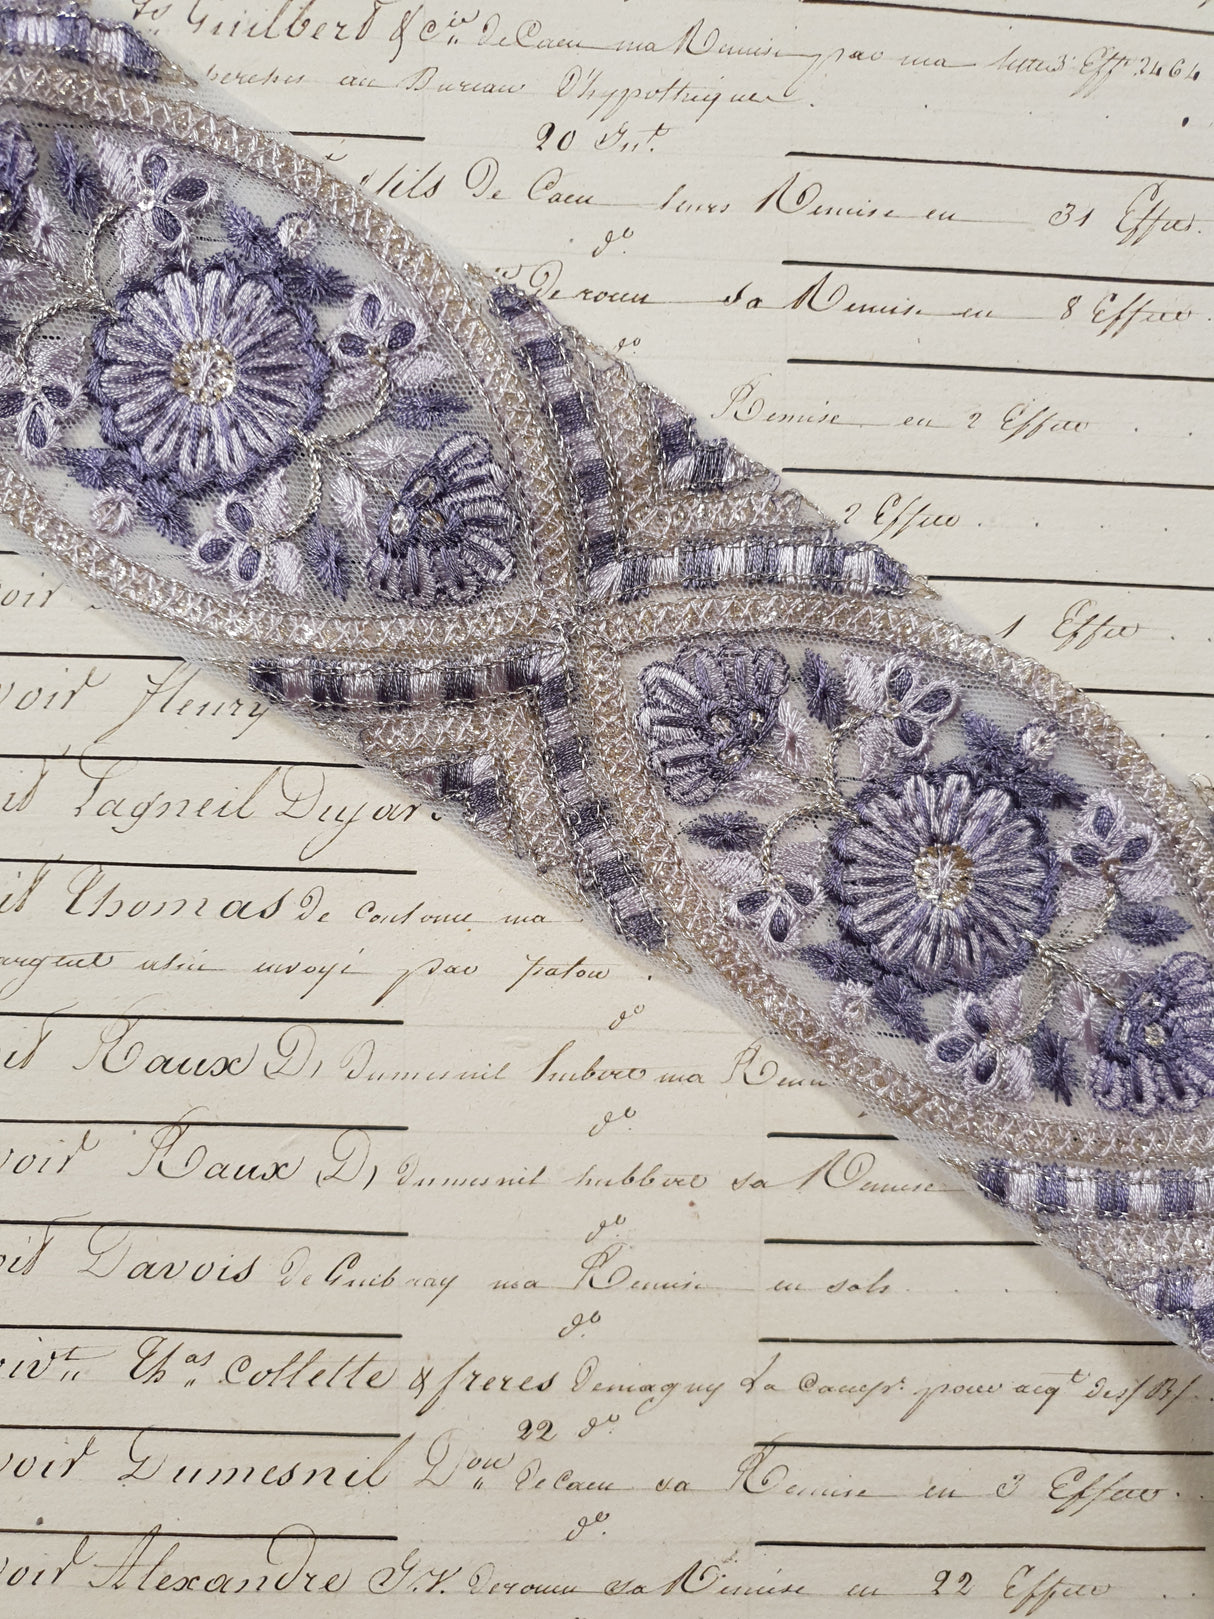 Guilbert & Cie de Caen ma Remise par ma lettre 3 Effts 2464
au Bureau D'hypothèque
20 Juit.
fils De Caen leurs Remise en 31 Effets.
do
De rouen sa Remise en 8 Effets
do
Remise en 2 Effets
2 Effets
oir
1 Effet
voir fleury
it Lagneil Dujar
it Thomas De ma
argent envoyé par
do
it Raux D, Dumesnil hubert ma Remi
do
voir Raux D, Dumesnil hubbert sa Remise
do
oit Davois de Guibray ma Remise en sols
do
Thas Collette & freres Demagny La pour acqt des
22 do
voir Dumesnil Don De Caen sa Remise en 3 Effets
do
voir Alexandre De rouen sa Remise en 22 Effets